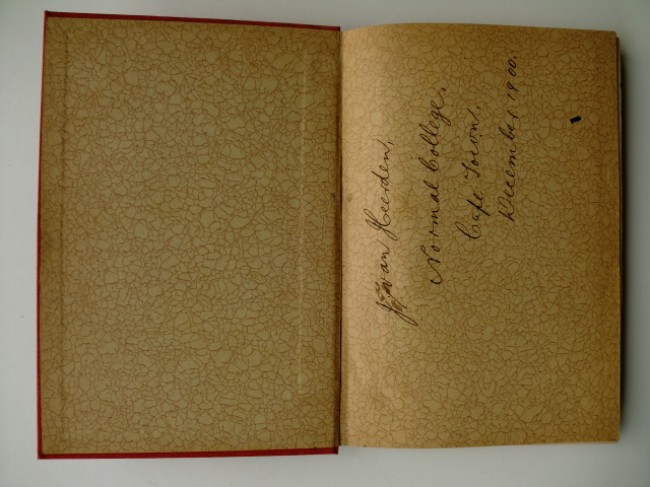 van Heerden,
Normal College,
Cape Town.
December 1900.